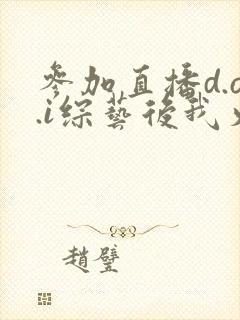 參加直播d.o
.i綜藝後我
趙璧